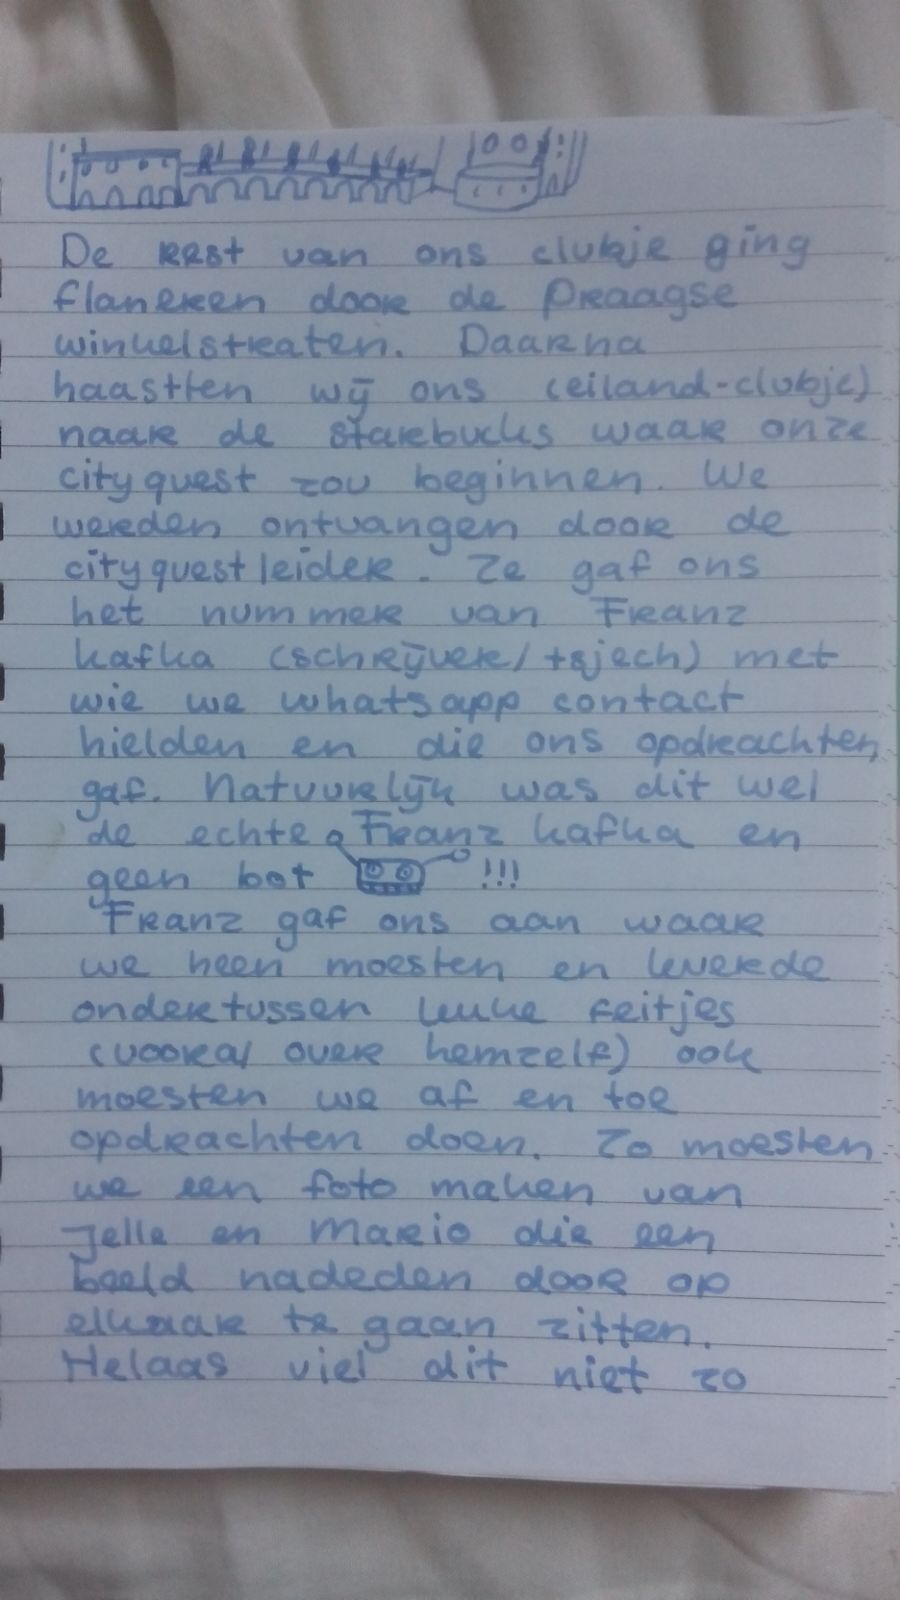 De rest van ons clubje ging
flaneren door de Praagse
winkelstraten. Daarna
haastten wij ons (eiland-clubje)
naar de starbucks waar onze
cityquest zou beginnen. We
werden ontvangen door de
cityquestleider. Ze gaf ons
het nummer van Franz
kafka (schrijver/tsjech) met
wie we whatsapp contact
hielden en die ons opdrachten
gaf. Natuurlijk was dit wel
de echte Franz kafka en
geen bot !!!
Franz gaf ons aan waar
we heen moesten en leverde
ondertussen leuke feitjes
(vooral over hemzelf) ook
moesten we af en toe
opdrachten doen. Zo moesten
we een foto maken van
Jelle en Mario die een
beeld nadeden door op
elkaar te gaan zitten.
Helaas viel dit niet zo